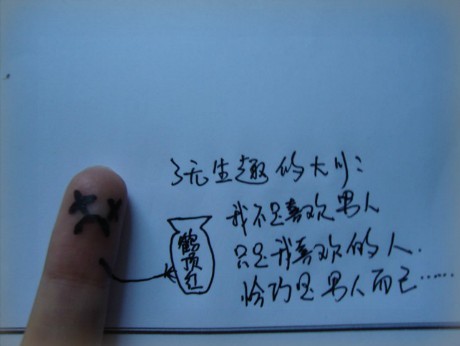 了无生趣的大
我不是喜欢男人
只是我喜欢的人.
恰巧是男人而已……
鹤顶红